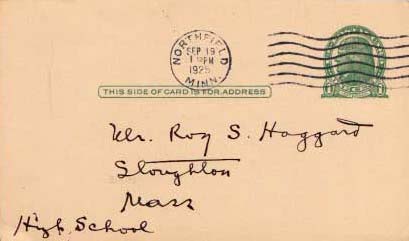 NORTHFIELD
SEP 19
1925
MINN.
THIS SIDE OF CARD IS FOR ADDRESS
Mr. Roy S. Haggard
Stoughton
Mass
High School